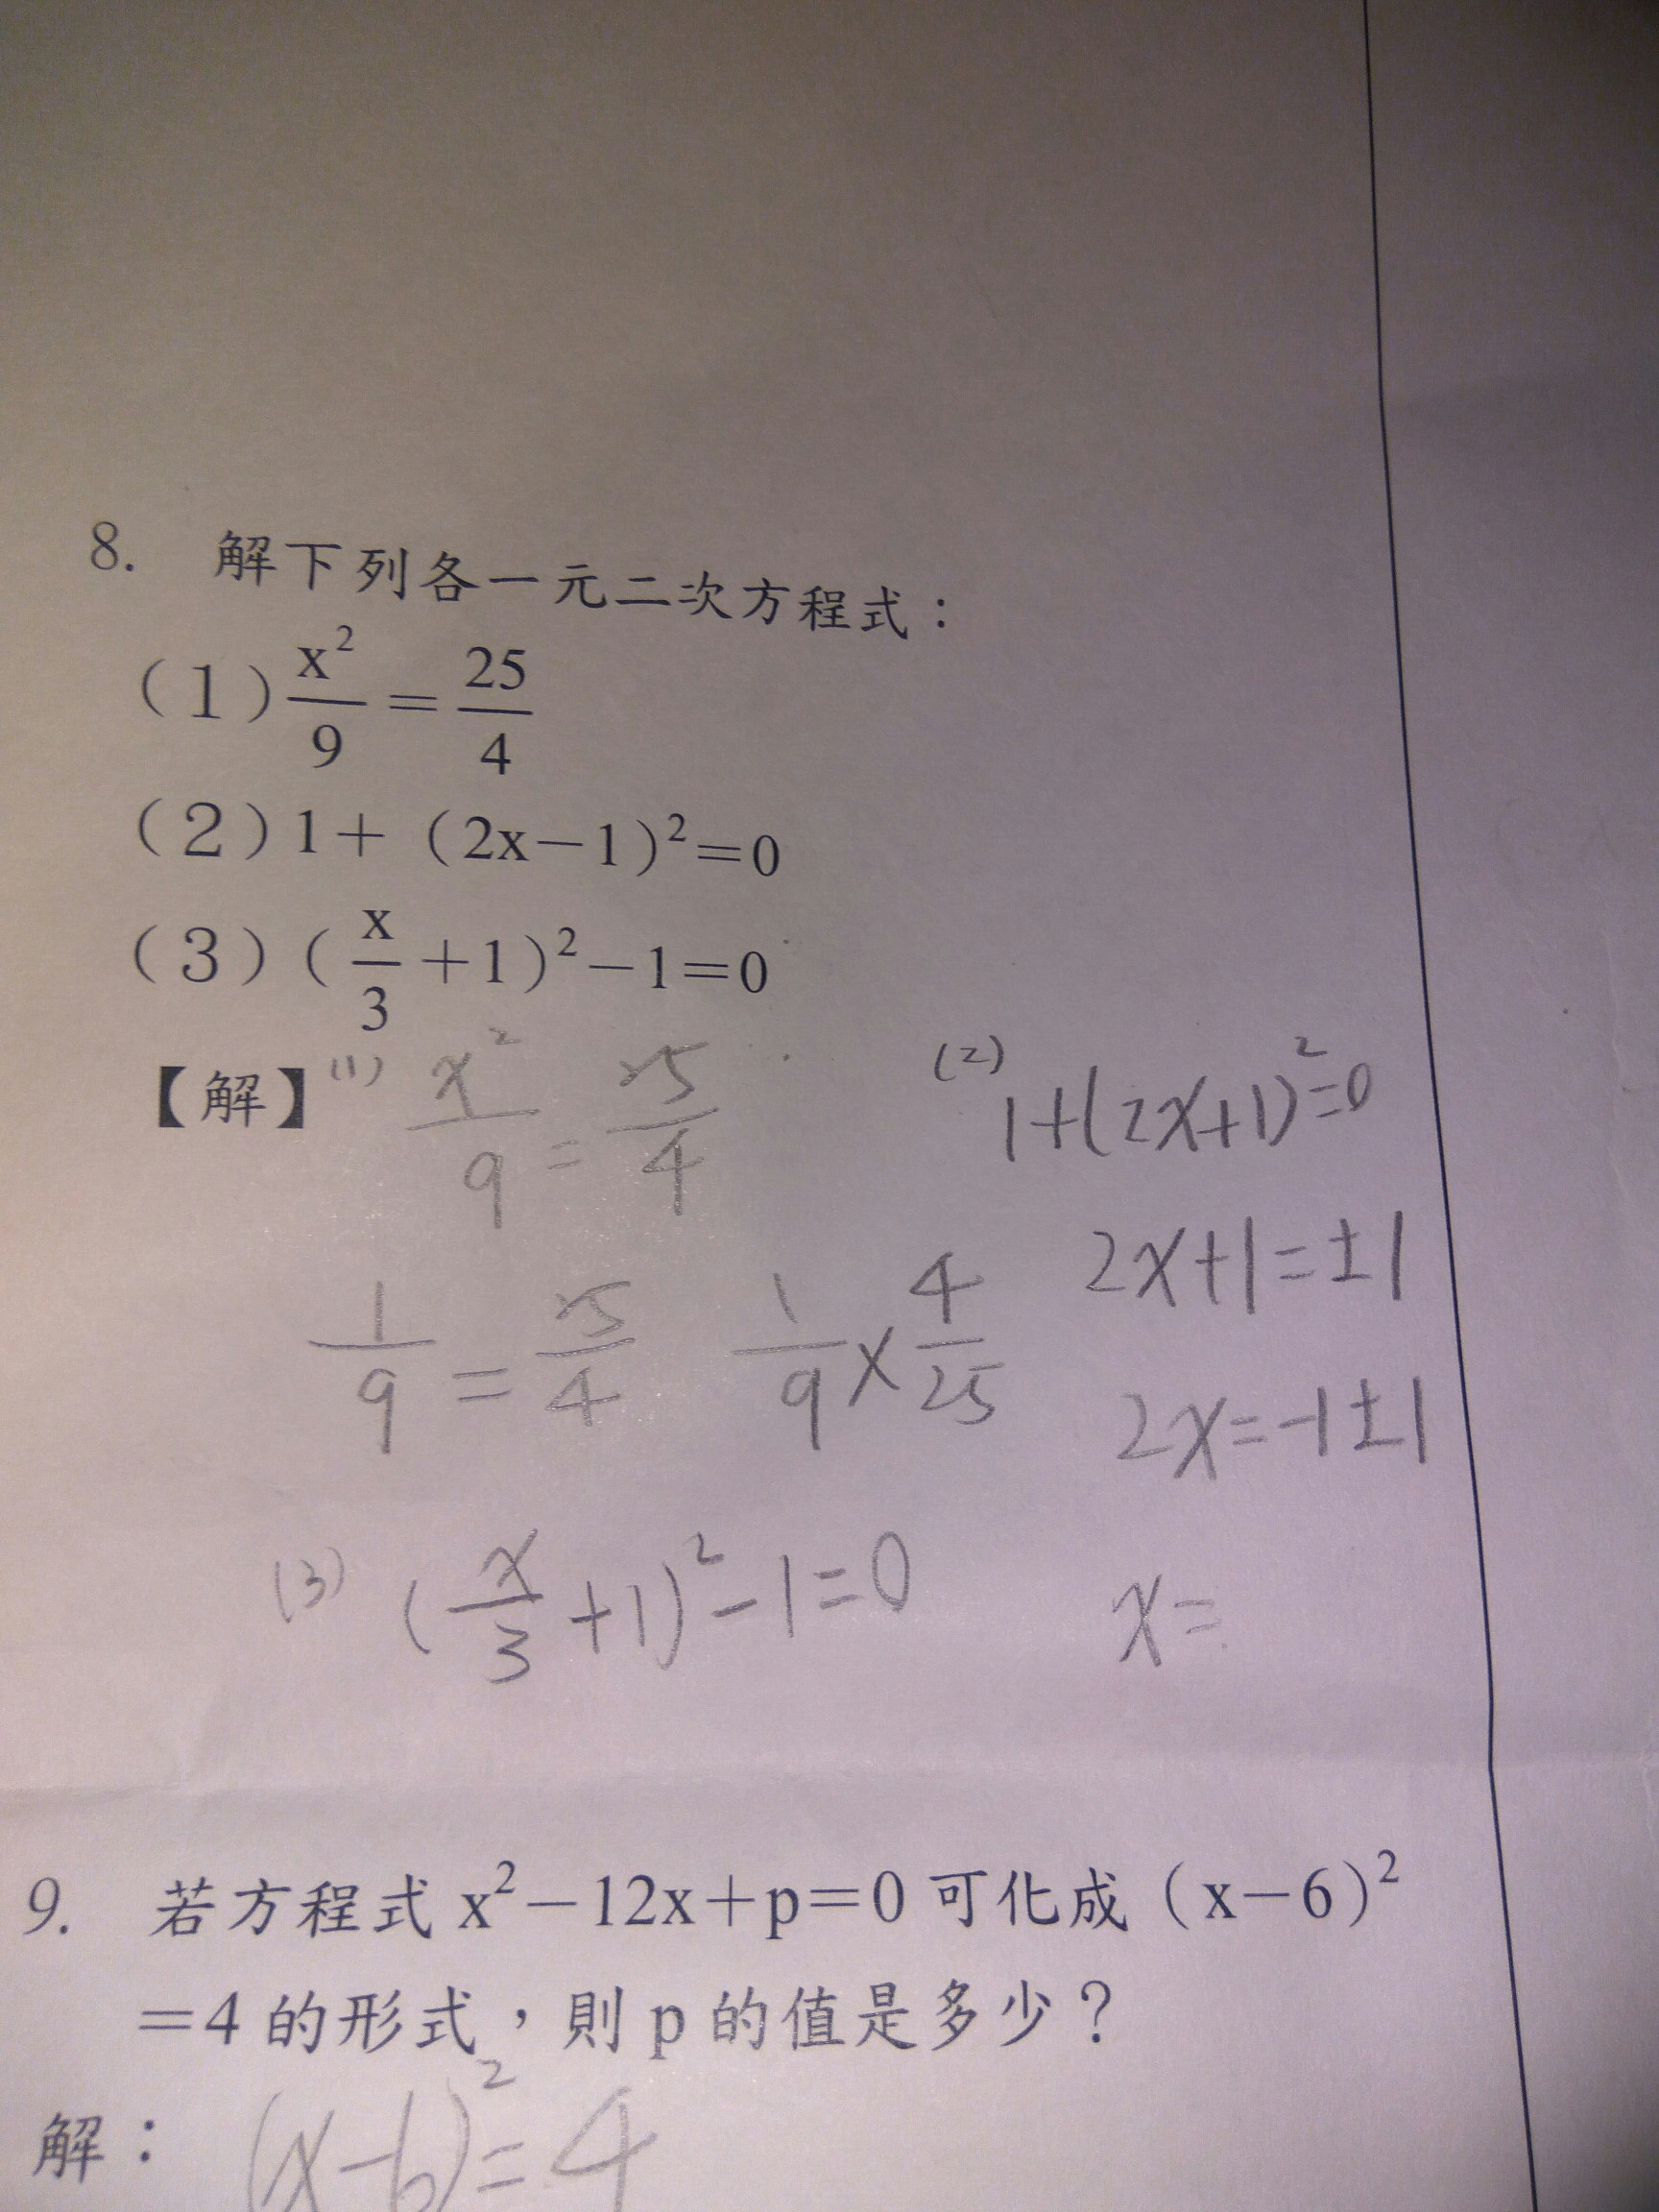 8. 解下列各一元二次方程式：
（1）x²/9＝25/4
（2）1＋（2x－1）²＝0
（3）（x/3＋1）²－1＝0
【解】(1) x²/9 = 25/4
1/9 = 25/4 1/9 × 4/25
(2) 1+(2x+1)²=0
2x+1=±1
2x=-1±1
x=
(3) (x/3+1)²-1=0
9. 若方程式 x²－12x＋p＝0 可化成（x－6）²
＝4 的形式，則 p 的值是多少？
解：(x-6)²=4